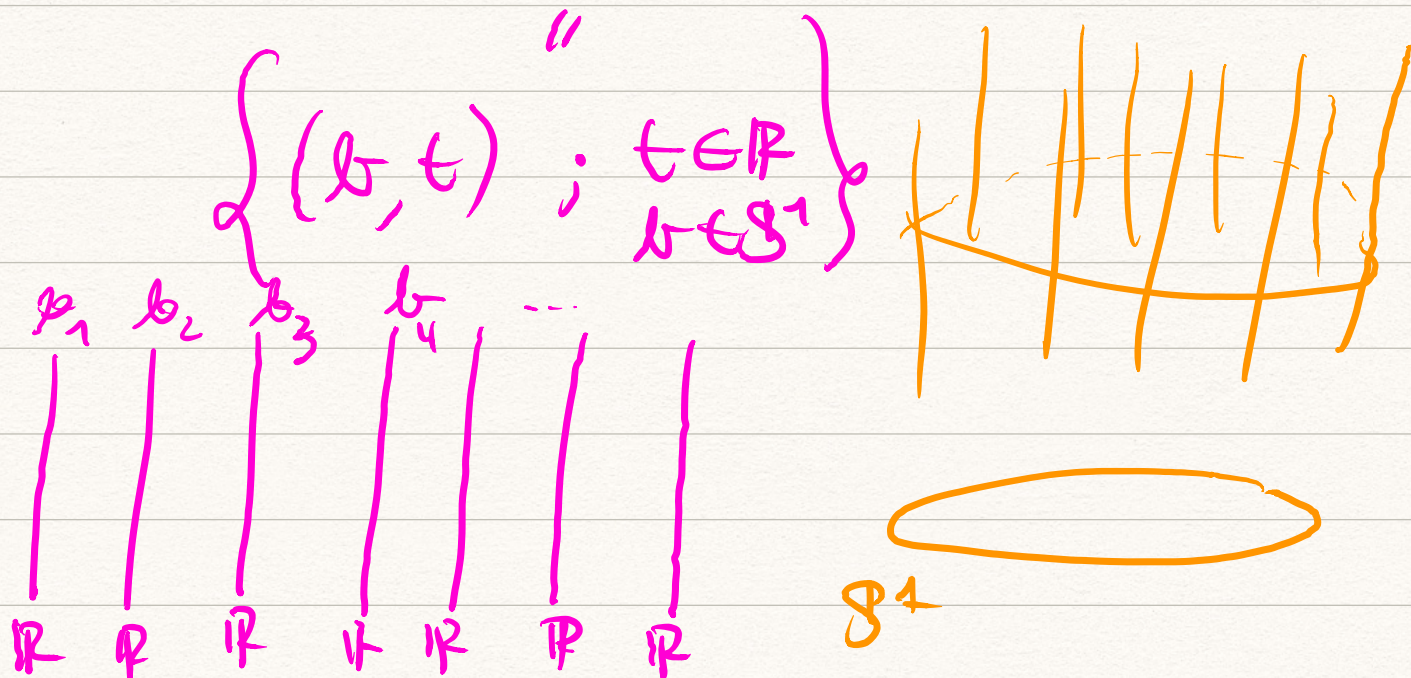 "
{ (b, t) ; t ∈ ℝ
b ∈ S¹ }
b₁ b₂ b₃ b₄ ...
ℝ ℝ ℝ ℝ ℝ ℝ ℝ
S¹